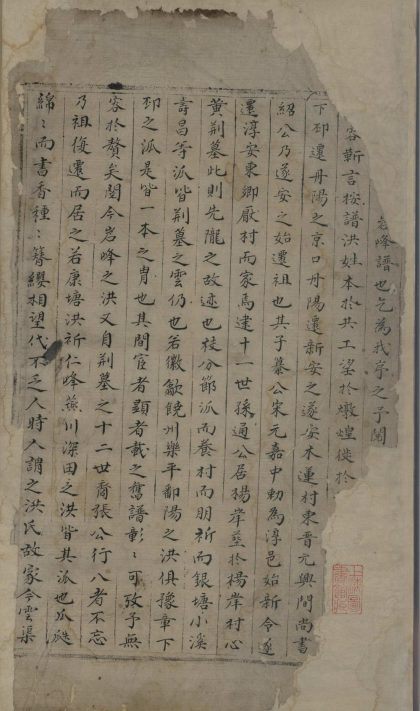 岩峰譜也乞為我序之予閱
容靳言按譜洪姓本於共工望於燉煌徙於
下邳遷丹陽之京口丹陽遷新安之遂安木蓮村東晋元興間尚書
紹公乃遂安之始遷祖也其子纂公宋元嘉中勅為淳邑始新令遂
還淳安東鄉厥村而家焉逮十一世孫通公居楊岸塟於楊岸村心
黄荆墓此則先隴之故迹也枝分節派而養村而朋祈而銀塘小溪
壽昌等派皆荆墓之雲仍也若徽歙饒州樂平鄱陽之洪俱豫章下
邳之派是皆一本之胄也其間宦者顯者載之舊譜彰〻可攷予無
容於贅矣閱今岩峰之洪又自荆墓之十二世裔張公行八者不忘
乃祖復還而居之若康塘洪祈仁峰燕川深田之洪皆其派也瓜瓞
綿〻而書香種〻簪纓相望代不乏人時人謂之洪氏故家今雲渠